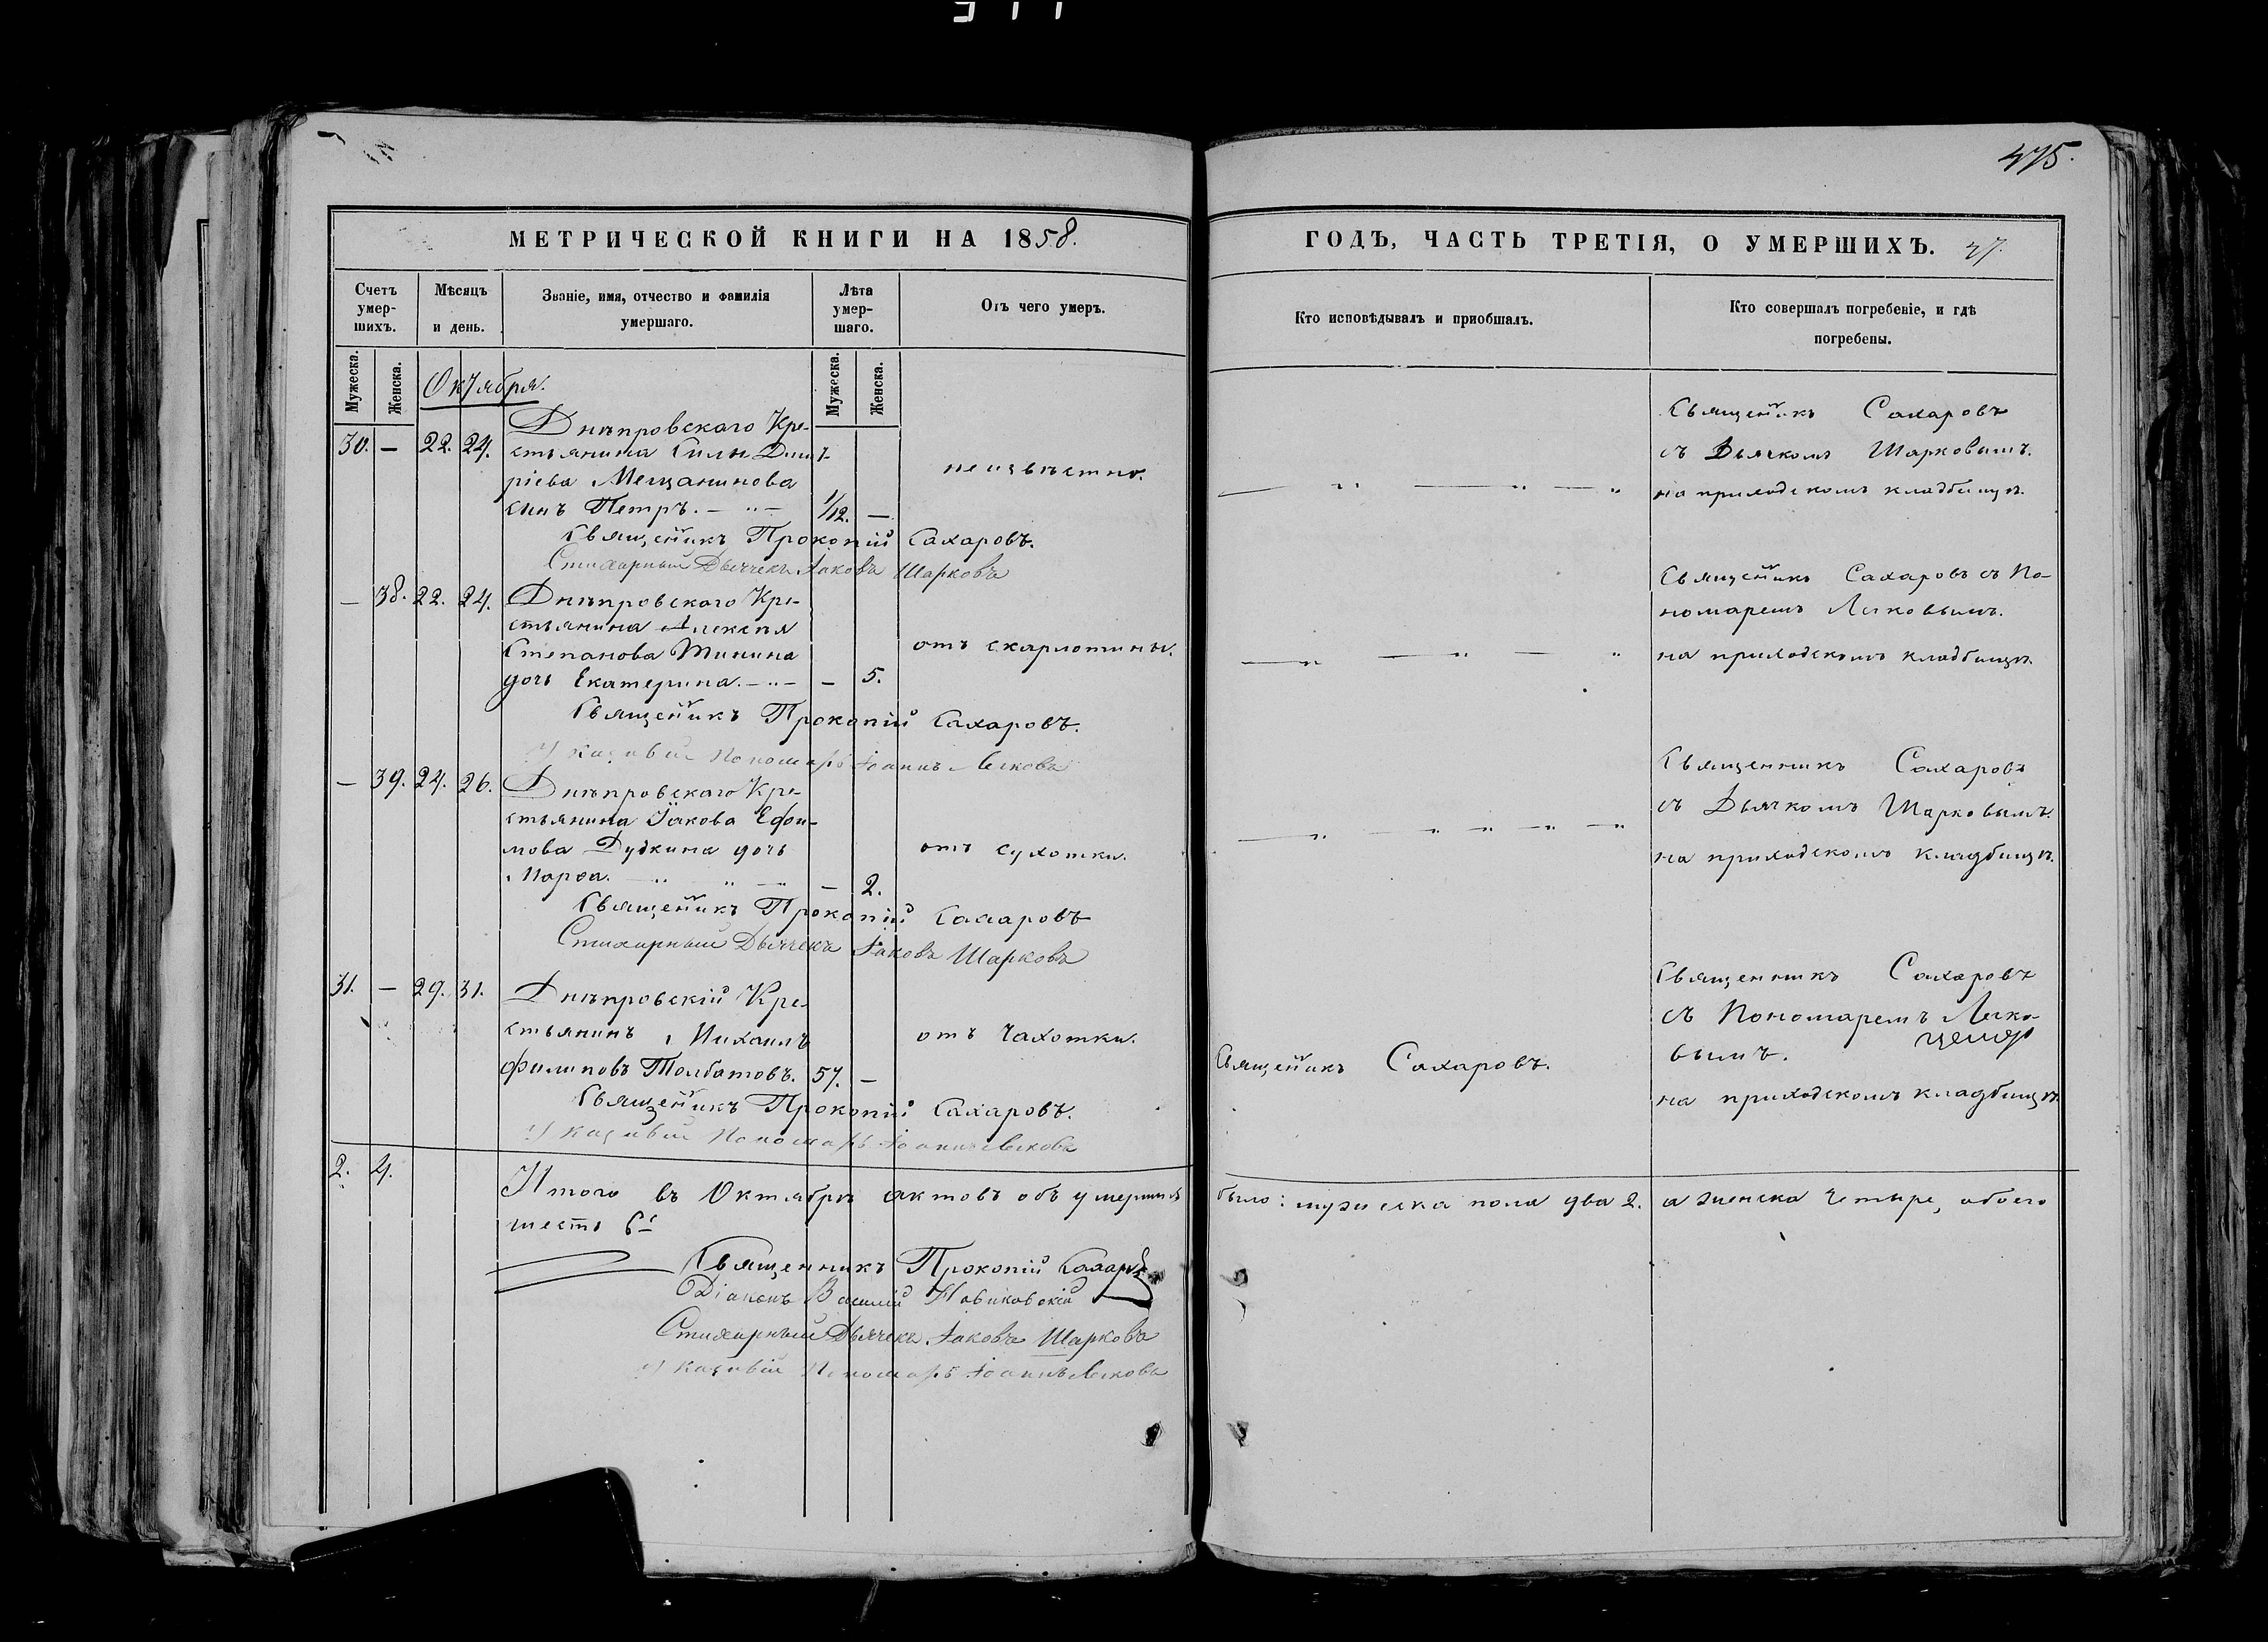 475.
МЕТРИЧЕСКОЙ КНИГИ НА 1858.
Счетъ умер-шихъ.
Мѣсяцъ и день.
Званіе, имя, отчество и фамилія умершаго.
Лѣта умер-шаго.
Отъ чего умеръ.
Мужеска.
Женска.
Мужеска.
Женска.
Октября.
Днѣпровскаго Кре-
30. — 22. 24. стьянина Силы Дмит-
ріева Мещанинова
неизвѣстно.
сынъ Петръ. — " — 1/12. —
Священникъ Прокопій Сахаровъ.
Стихарный Дьячекъ Іаковъ Шарковъ
— 38. 22. 24. Днѣпровскаго Кре-
стьянина Алексѣя
Степанова Тинина
отъ скарлотины.
дочь Екатерина. — " — — 5.
Священникъ Прокопій Сахаровъ.
Указный Пономарь Іоаннъ
— 39. 24. 26. Днѣпровскаго Кре-
стьянина Іакова Ефи-
мова Дудкина дочь
отъ сухотки.
Марѳа. — 2.
Священникъ Прокопій Сахаровъ
Стихарный Дьячекъ Іаковъ Шарковъ
31. — 29. 31. Днѣпровскій Кре-
стьянинъ Михаилъ
отъ чахотки.
Филиповъ Толбатовъ. 57. —
Священникъ Прокопій Сахаровъ.
Указный Пономарь Іоаннъ
2. 4. Итого въ Октябрѣ актовъ объ умершихъ
шесть 6ь
Священникъ Прокопій Сахаровъ
Діаконъ Василій Новиковскій
Стихарный Дьячекъ Іаковъ Шарковъ
Указный Пономарь Іоаннъ
ГОДЪ, ЧАСТЬ ТРЕТІЯ, О УМЕРШИХЪ. 47.
Кто исповѣдывалъ и пріобщалъ.
Кто совершалъ погребеніе, и гдѣ погребены.
Священникъ Сахаровъ
съ Дьячкомъ Шарковымъ.
на приходскомъ кладбищѣ.
Священникъ Сахаровъ съ По-
номаремъ
на приходскомъ кладбищѣ.
Священникъ Сахаровъ
съ Дьячкомъ Шарковымъ.
на приходскомъ кладбищѣ.
Священникъ Сахаровъ.
Священникъ Сахаровъ
съ Пономаремъ
вымъ.
на приходскомъ кладбищѣ.
было: мужеска пола два 2. а женска четыре, обоего